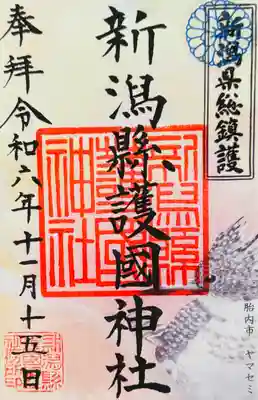 新潟県総鎮護
新潟縣護國神社
奉拝令和六年十一月十五日
胎内市 ヤマセミ